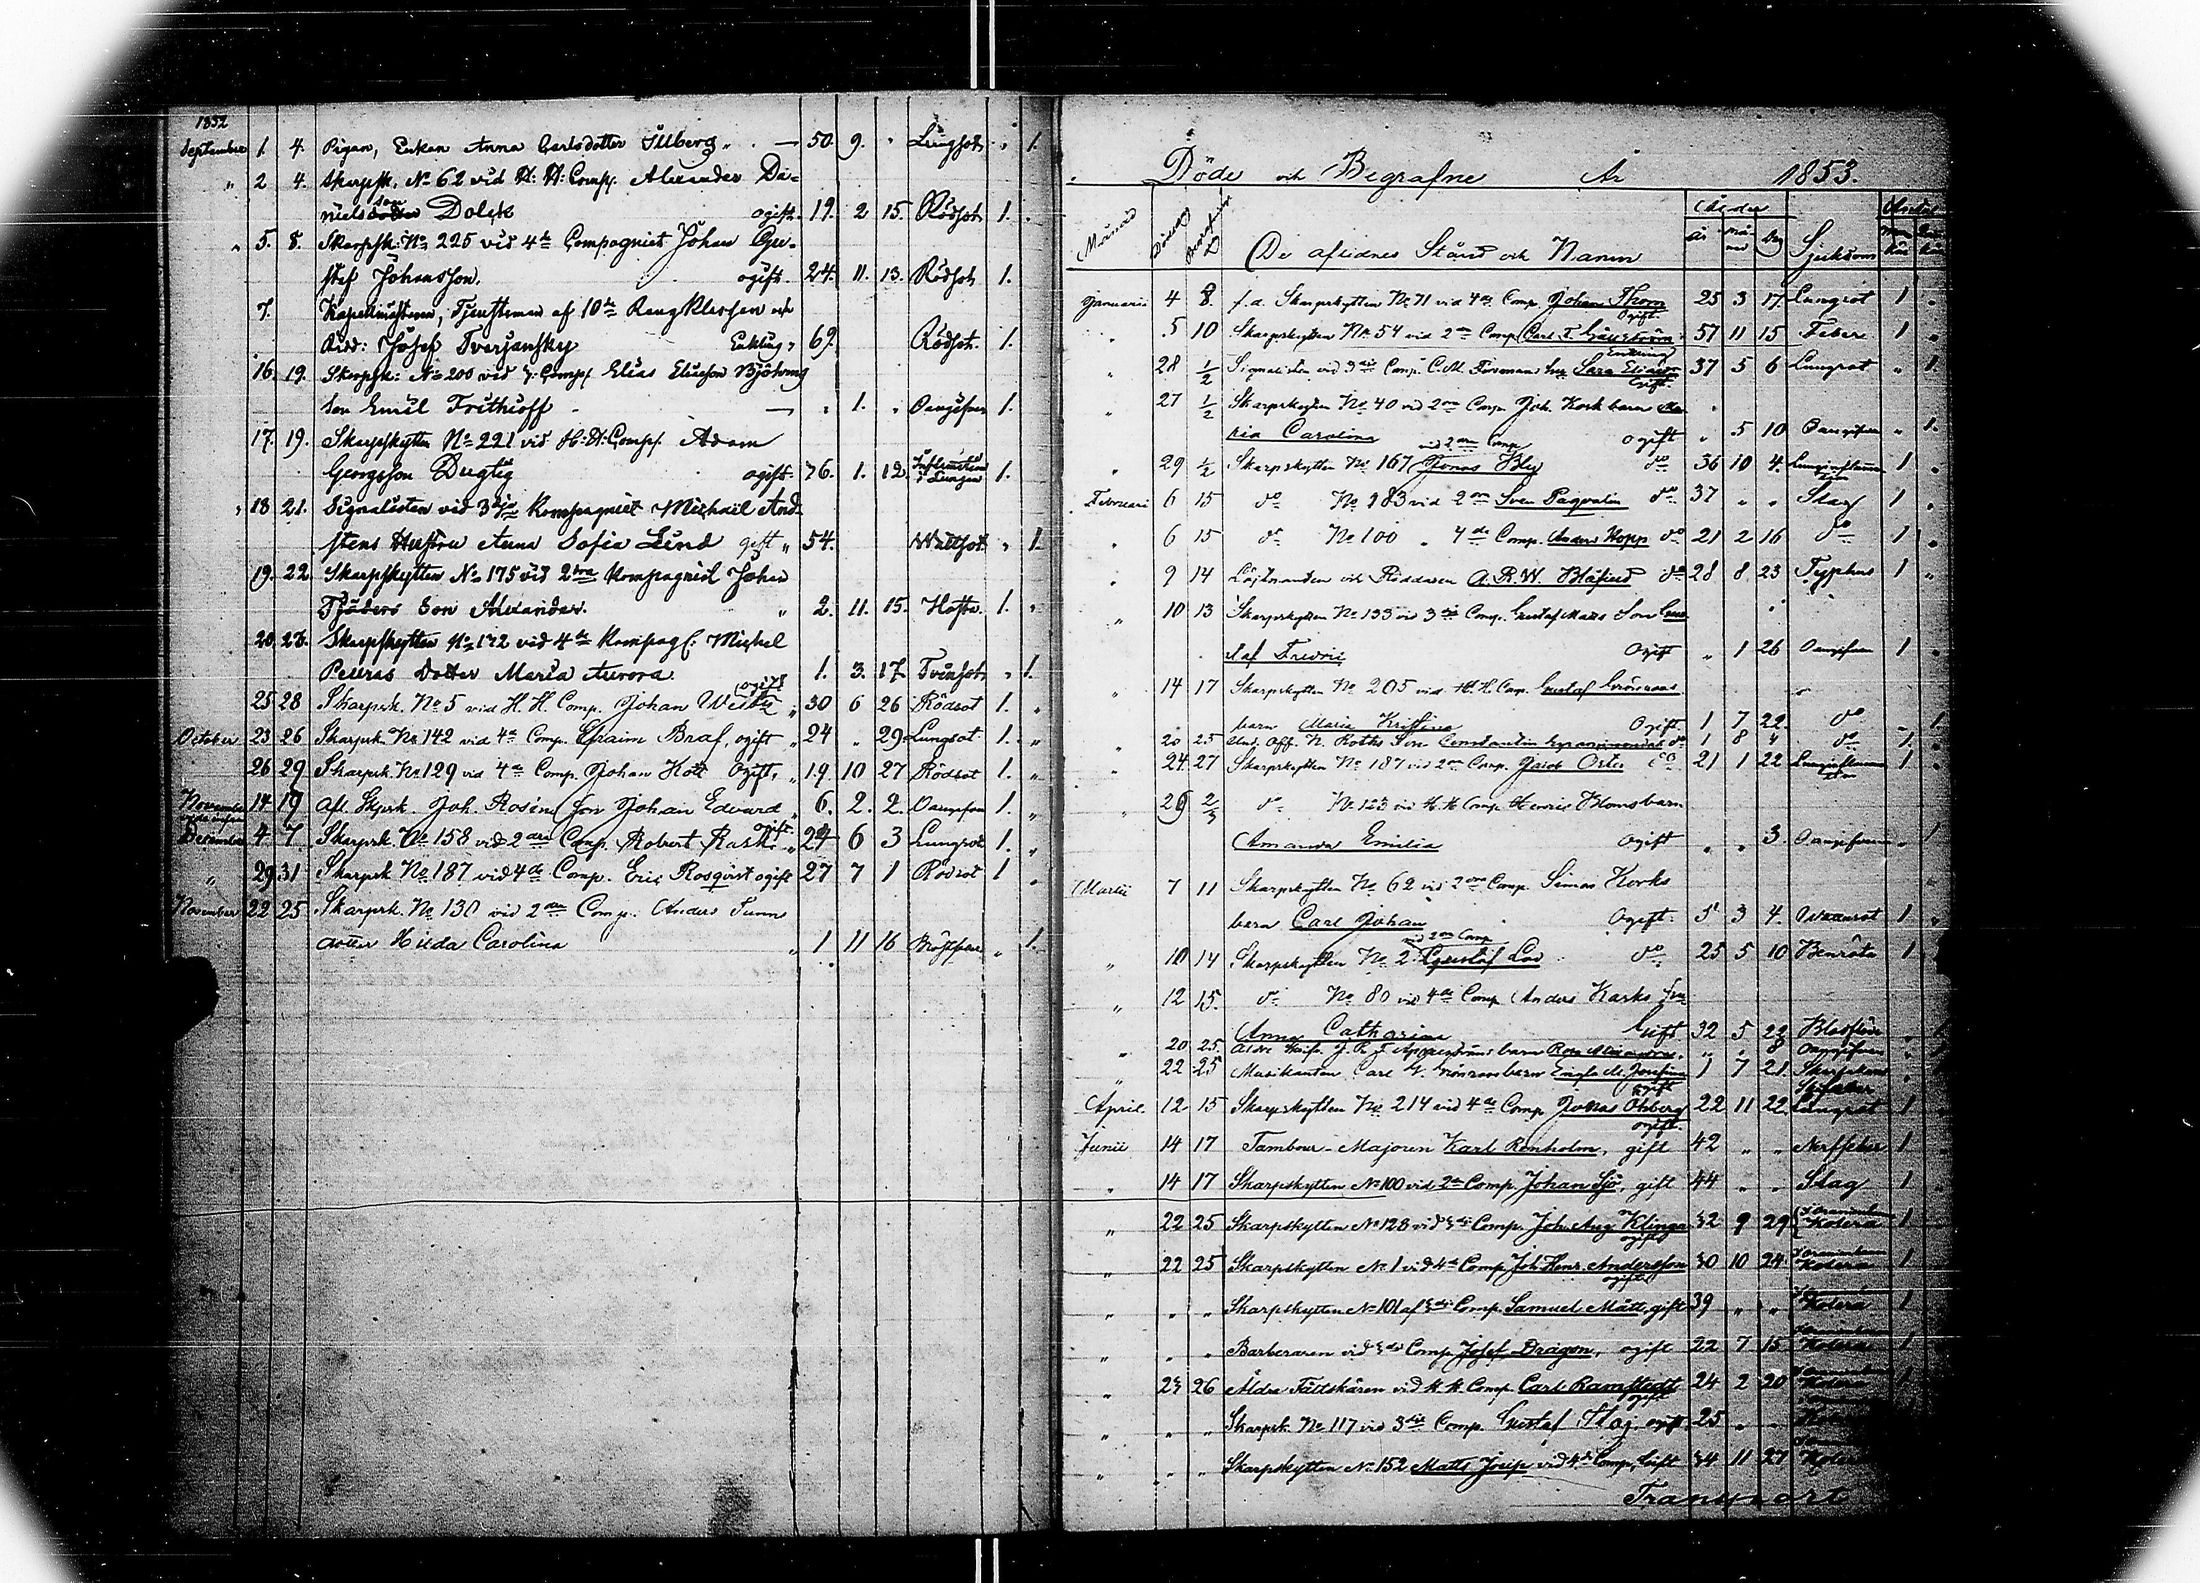 1852
September 1. 4. Pigan, Enkan Anna Carlsdotter Ullberg „ — 50. 9. „ Lungsot „ 1.
„ 2 4. Skarpsk. No 62 vid H: H: Comp. Alexander Da=
nielsson Dolck ogift. 19. 2 15. Rödsot 1.
„ 5. 8. Skarpsk: No 225 vid 4de Compagniet Johan Gu-
staf Johansson. ogift. 24. 11. 13. Rödsot 1.
7. Kapellmästaren, Tjensteman af 10de Rang Klassen och
Ridd: Josef Tversansky Enkling, 69. Rödsot. 1.
16. 19. Skarpsk: No 200 vid 3: Comp. Elias Eliasson Björns
Son Emil Frithioff — „ 1. „ Oangifven 1.
17. 19. Skarpskytten No 221 vid H: H: Comp. Adam
Georgsson Dugtig ogift. 76. 1. 12. Inflamation i Lungan 1.
„ 18 21. Signalisten vid 3dje Kompagniet Michael And-
stens Hustru Anna Sofia Lind gift „ 54. Wattsot „ 1.
19. 22. Skarpskytten No 175 vid 2dra Kompagniet Johan
Tjäders Son Alexander. „ 2. 11. 15. Hosta. 1. „
20. 23. Skarpskytten No 172 vid 4de Kompag: Michel
Peuras Dotter Maria Aurora 1. 3. 17. Tvinsot. „ 1.
25 28 Skarpsk. No 5 vid H. H. Comp. Johan ogift „ 30 6 26 Rödsot 1. „
October 23 26 Skarpsk. No 142 vid 4de Comp. Efraim Braf, ogift „ 24 „ 29 Lungsot 1. „
26 29 Skarpsk. No 129 vid 4de Comp. Johan Kött Ogift, „ 19 10 27 Rödsot 1. „
November 14 19 Afl. Skprk. Joh. Rosén Son Johan Edvard „ 6. 2. 2. Oangifven 1. „
December 4 7 Skarpsk. No 158 vid 2dra Comp. Robert Rask ogift „ 24 6 3 Lungsot 1. „
„ 29 31 Skarpsk No 187 vid 4de Comp. Eric Rosqvist ogift 27 7 1 Rödsot 1 „
November 22 25 Skarpsk. No 130 vid 2dra Comp. Anders Tunns
dotter Hilda Carolina „ 1 11 16 „ 1.
Döde och Begrafne År 1853.
Månad Döde Begrafne De aflidnes Stånd och Namn Ålder år månad dag Sjukdom Antal Mankön Qvinkön
Januarii 4 8 f.d. Skarpskytten No 71 vid 4de Comp Johan Thorn Ogift. 25 3 17 Lungsot 1 „
„ 5 10 Skarpskytten No 54 vid 2dra Comp Carl F. Enkling 57 11 15 Feber 1 „
„ 28 1/2 Signalisten vid 3dje Comp. C.M. Forsmans hu: Sara Gift. 37 5 6 Lungsot „ 1.
„ 27 1/2 Skarpskytten No 40 vid 2dra Comp Joh. Kock barn Ma-
ria Carolina ogift „ 5 10 Oangifven „ 1.
„ 29 1/2 Skarpskytten No 167 vid 2dra Comp Jonas Bly do 36 10 4. Lunginflammation 1 „
Februarii 6 15 do No 183 vid 2dra Sven Paqvalin do 37 „ „ Slag 1 „
„ 6 15 do No 100 „ 4de Comp. Anders Hopp do 21 2 16 do 1 „
„ 9 14 Löjtnanten och Riddaren A. R. W. Blåfield do 28 8 23 Typhus 1 „
„ 10 13 Skarpskytten No 133 vid 3dje Comp. Gustaf Matts Son Gus-
taf Fredric Ogift „ 1 26 Oangifven 1 „
„ 14 17 Skarpskytten No 205 vid H. H. Comp. Gustaf Grönroos
barn Maria Kristina Ogift 1 7 22 do „ 1.
„ 20 25 Und. Off. N. Roths Son Constantin do 1 8 „ do 1 „
„ 24 27 Skarpskytten No 187 vid 2dra Comp. Jacob Orte do 21 1 22 Lunginflammation 1 „
„ 26 2/3 do No 123 vid H. H. Comp Henric Bloms barn
Amanda Emilia ogift „ „ 3. Oangifven „ 1
Martii 7 11 Skarpskytten No 62 vid 2dra Comp. Simas Korks
barn Carl Johan Ogift. 5 3 4. Wattusot 1 „
„ 10 14 Skarpskytten No 2 vid 2dra Comp Gustaf Lod do 25 5 10 Benröta 1 „
„ 12 15. do No 80 vid 4de Comp Anders Karks hu
Anna Catharina Gift 32 5 22 „ 1
„ 20 25. Äldre J. R. F. barn „ „ 8 Oangifven „ 1
„ 22 25 Musikanten Carl G. Grönroos barn Engla M. Josefina ogift 1 7 21 „ 1
April. 12 15 Skarpskytten No 214 vid 4de Comp Jonas Öhberg ogift. 22 11 22 Lungsot 1 „
Junii 14 17 Tambour-Majoren Karl Rönholm, gift 42 „ „ Nerffeber 1 „
„ 14 17 Skarpskytten No 100 vid 2a Comp. Johan Sjö, gift 44 „ „ Slag 1 „
„ 22 25 Skarpskytten No 128 vid 3dje Comp. Joh. Aug Klinga ogift 32 9 29 Kolera 1 „
„ 22 25 Skarpskytten No 1 vid 4de Comp Joh Henr. Andersson ogift 30 10 24 Kolera 1 „
„ „ „ Skarpskytten No 101 af 3dje Comp. Samuel Mått, gift 39 „ „ Kolera 1
„ „ „ Barberaren vid 3dje Comp Josef Dragon, ogift 22 7 15 Kolera 1
„ 23 26 Äldre Fältskären vid H. H. Comp Carl Ramstedt ogift 24 2 20 Kolera 1
„ „ „ Skarpsk. No 117 vid 3dje Comp. Gustaf Stoj ogift 25 „ „
„ „ „ Skarpskytten No 152 Matts Josip vid 4de Comp, Gift 34 11 27 Kolera
Transport